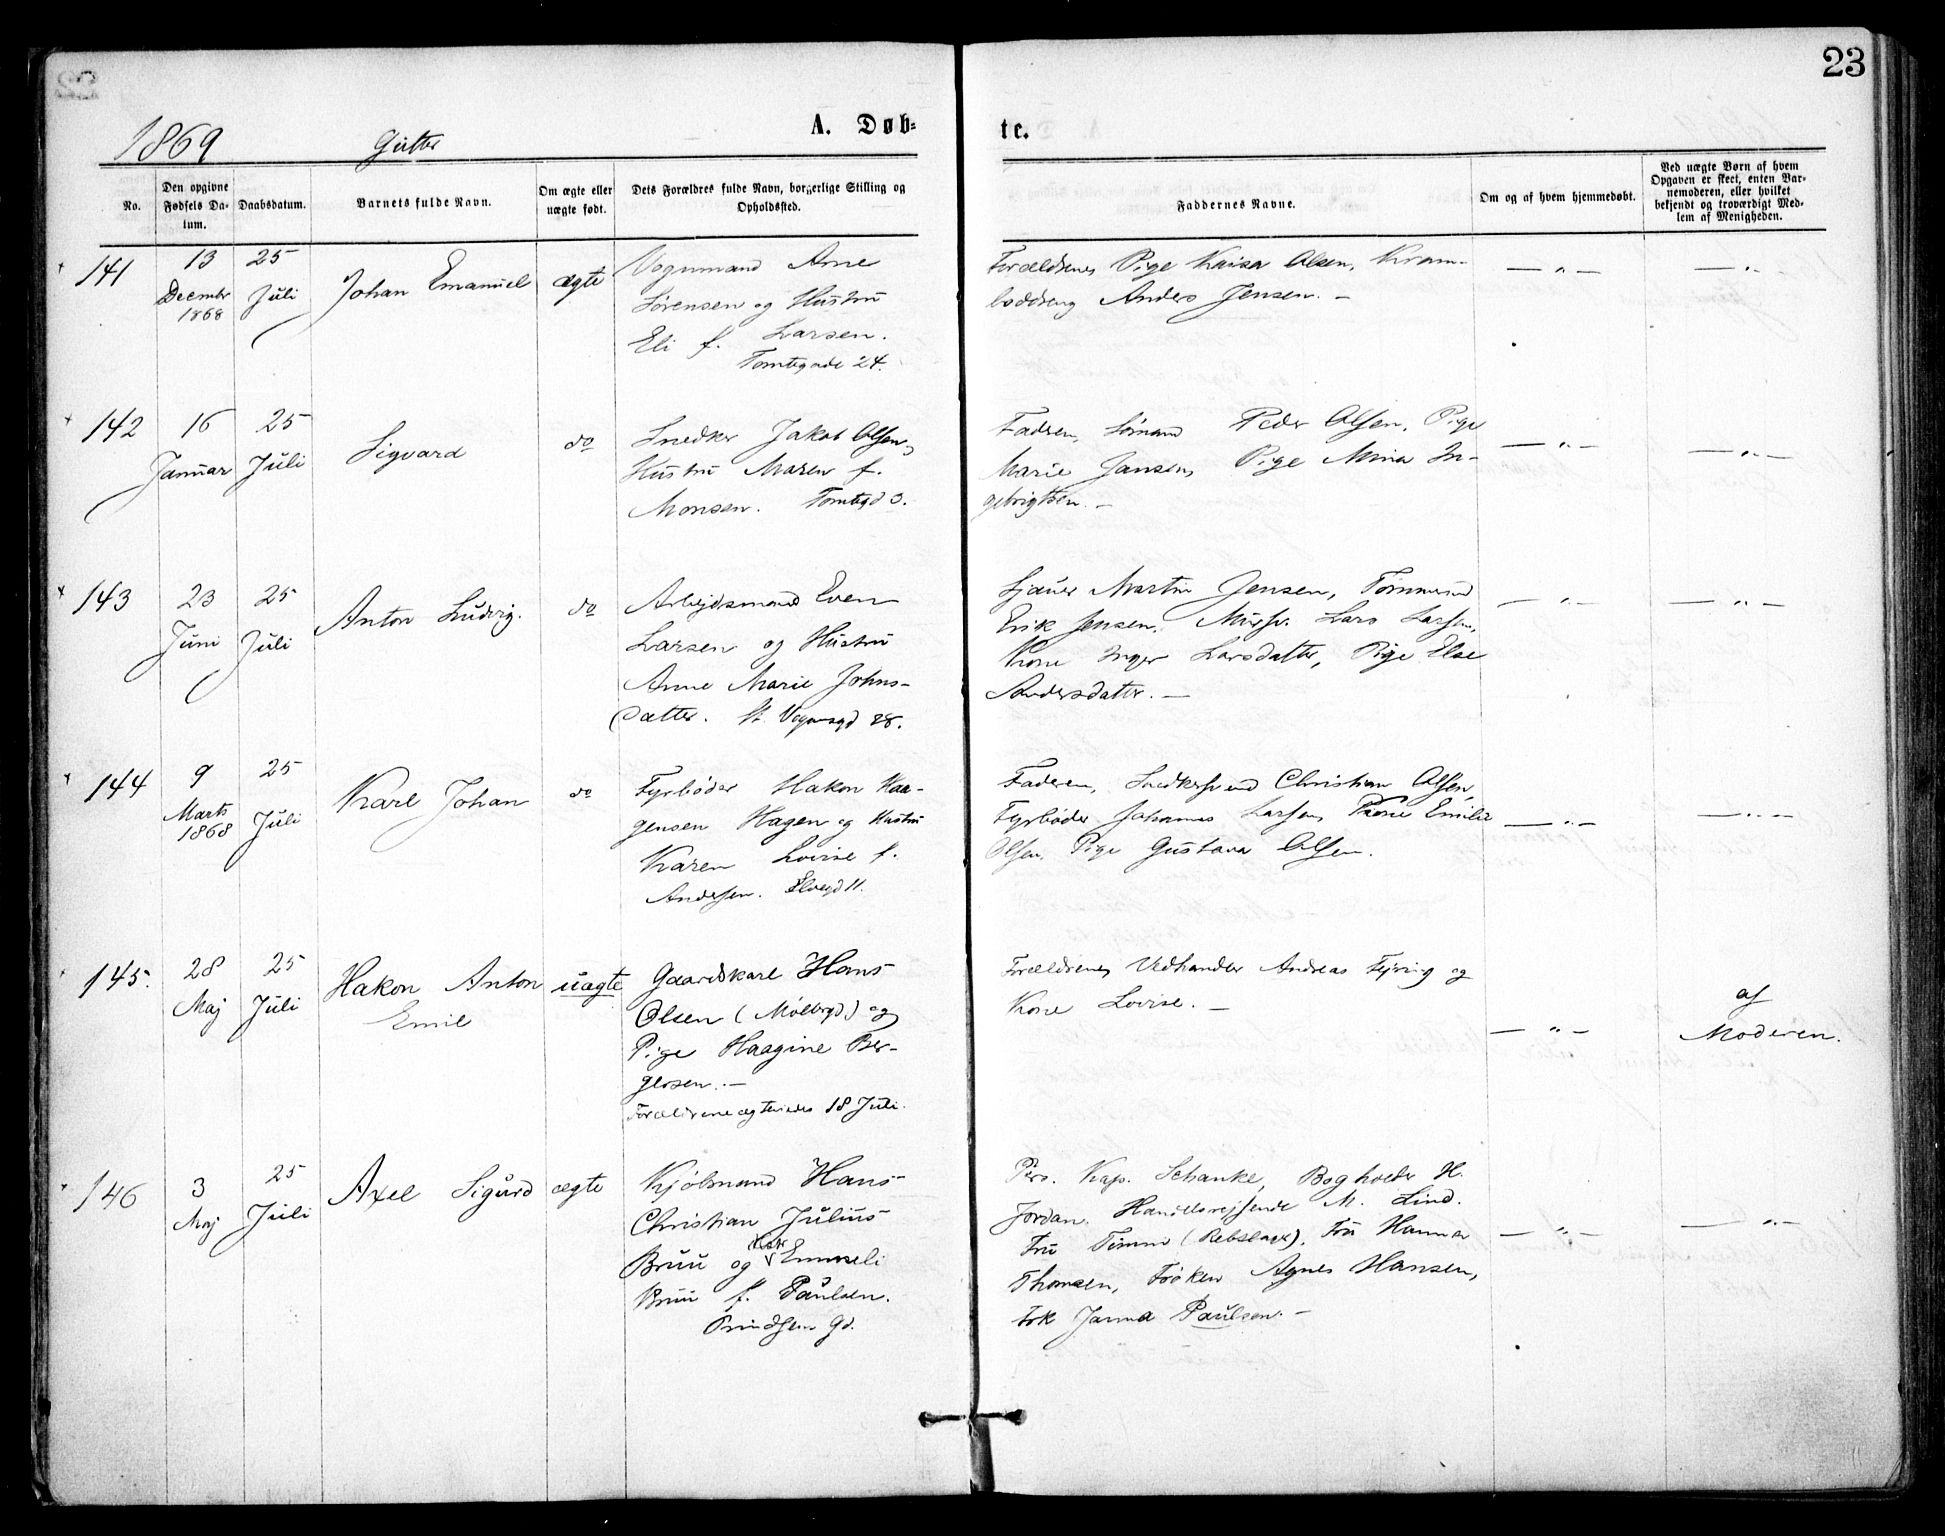 23
1869 Gutter A. Døb- te.
No.
Den opgivne Fødsels Da- tum.
Daabsdatum.
Barnets fulde Navn.
Om ægte eller uægte født.
Dets Forældres fulde Navn, borgerlige Stilling og Opholdssted.
Faddernes Navne.
Om og af hvem hjemmedøbt.
Ved uægte Børn af hvem Opgaven er skeet, enten Bar- nemoderen, eller hvilket bekjendt og troværdigt Med- lem af Menigheden.
141 13 Decembr 1868 25 Juli Johan Emanuel ægte
Vognmand Arne
Sørensen og Hustru
Eli f. Larsen.
Tomtegade 24.
Forældrenes Pige Kaisa Olsen, Kram-
boddreng Anders Jensen. —
— " — — " —
142 16 Januar 25 Juli Sigvard do
Snedker Jakob Olsen,
Hustru Maren f.
Monsen. Tomtegd 3.
Faderen, Sømand Peder Olsen, Pige
Marie Jansen, Pige Mina In-
gebrigtsen. —
— " — — " —
143 23 Juni 25 Juli Anton Ludvig. do
Arbejdsmand Even
Larsen og Hustru
Anne Marie Johns-
Datter. St. Vognmgd 28.
Sjauer Martin Jensen, Tømmermd
Erik Jensen, Lars Larsen,
Kone Inger Larsdatter, Pige Else
Andersdatter. —
— " — — " —
144 9 Marts 1868 25 Juli Karl Johan do
Fyrbøder Hakon Haa-
gensen Hagen og Hustru
Karen Lovise f.
Andersen. Elvegd 11.
Faderen, Snedkersvend Christian Olsen,
Fyrbøder Johannes Larsen, Kone Emilie
Olsen, Pige Gustava Olsen.
— " — — " —
145. 28 Maj 25 Juli Hakon Anton Emil uægte
Gaardskarl Hans
Olsen (Møllergd) og
Pige Haagine Ber-
gersen. —
Forældrene ægteviedes 18 Juli.
Forældrenes Vedhandler Andreas Fejring og
Kone Lovise. —
— " — af Moderen.
146 3 Maj 25 Juli Axel Sigurd ægte
Kjøbmand Hans
Christian Julius
Bruu og Hustr Emmeli
Bruu f. Paulsen.
Prindsens Gd.
Pers. Kap. Schanke, Bogholder H.
Jordan. Handelsrejsende M. Lind.
Fru Timm (Rebslager), Fru Hanna
Thomsen, Frøken Agnes Hansen,
Frk Janna Paulsen. —
— " — — " —